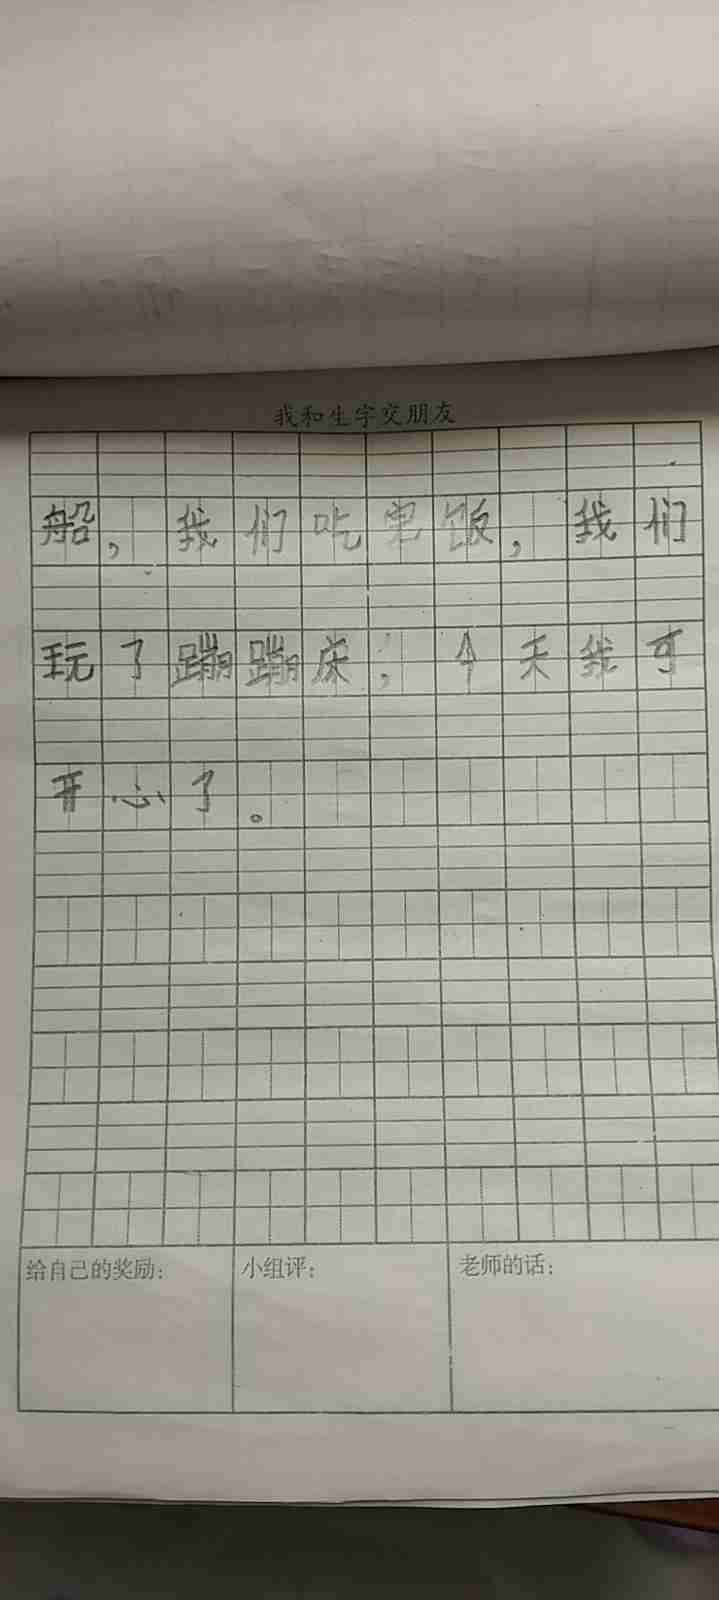 我和生字交朋友
船，我们吃完饭，我们
玩了蹦蹦床，今天我可
开心了。
给自己的奖励：
小组评：
老师的话：